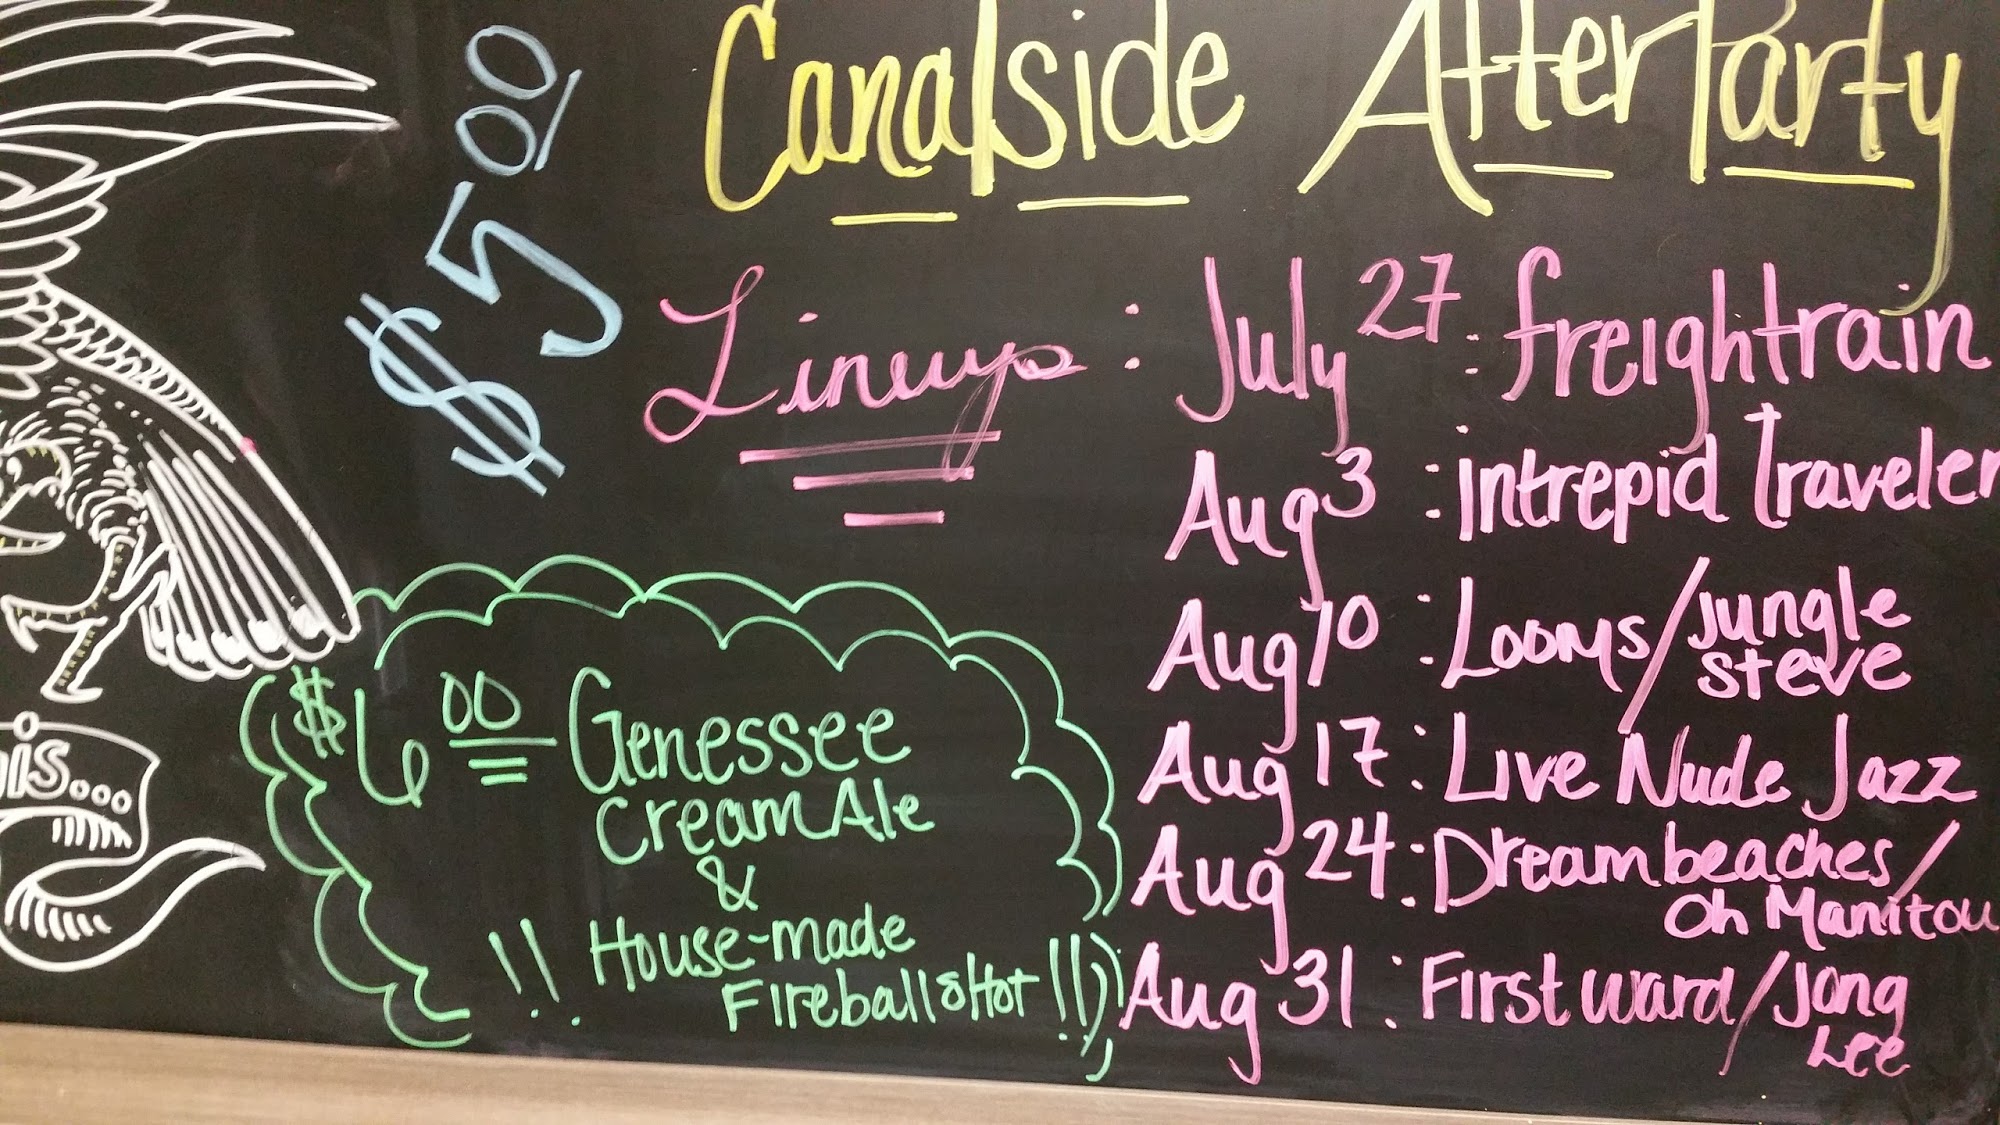 Canalside AfterParty
$5 00
Lineup : July 27 : freightrain
Aug 3 : Intrepid Traveler
Aug 10 : Looms / Jungle
Steve
Aug 17 : Live Nude Jazz
Aug 24 : Dreambeaches /
Oh Manitou
Aug 31 : First Ward / Jong
Lee
$6 00 Genessee
Cream Ale
&
!! House-made
Fireball shot !!
is...